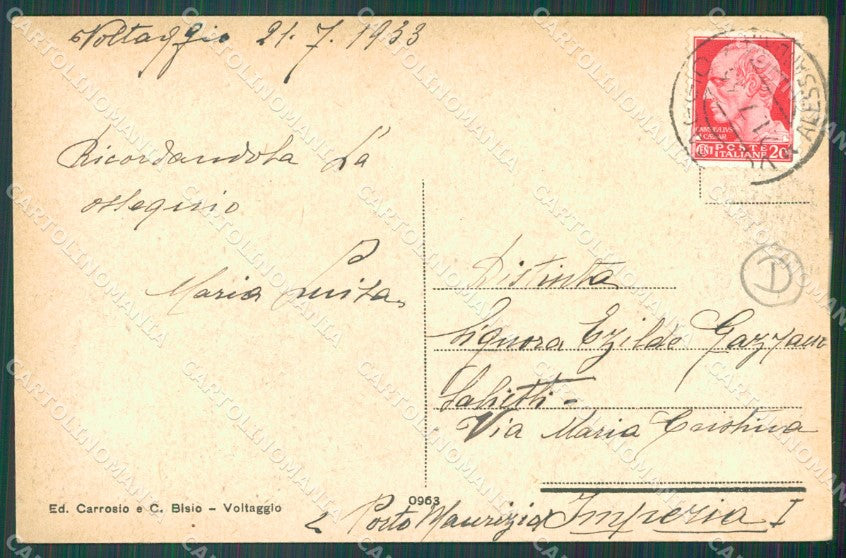 Voltaggio 21. 7. 1933
Ricordandola La
ossequio
Maria Luisa
POSTE
ITALIANE
20
ALESSAN
T
Distinta
Signora Ezilde Gazzano
Via Maria Cristina
Porto Maurizio Imperia I
0963
Ed. Carrosio e C. Bisio - Voltaggio
CARTOLINOMANIA